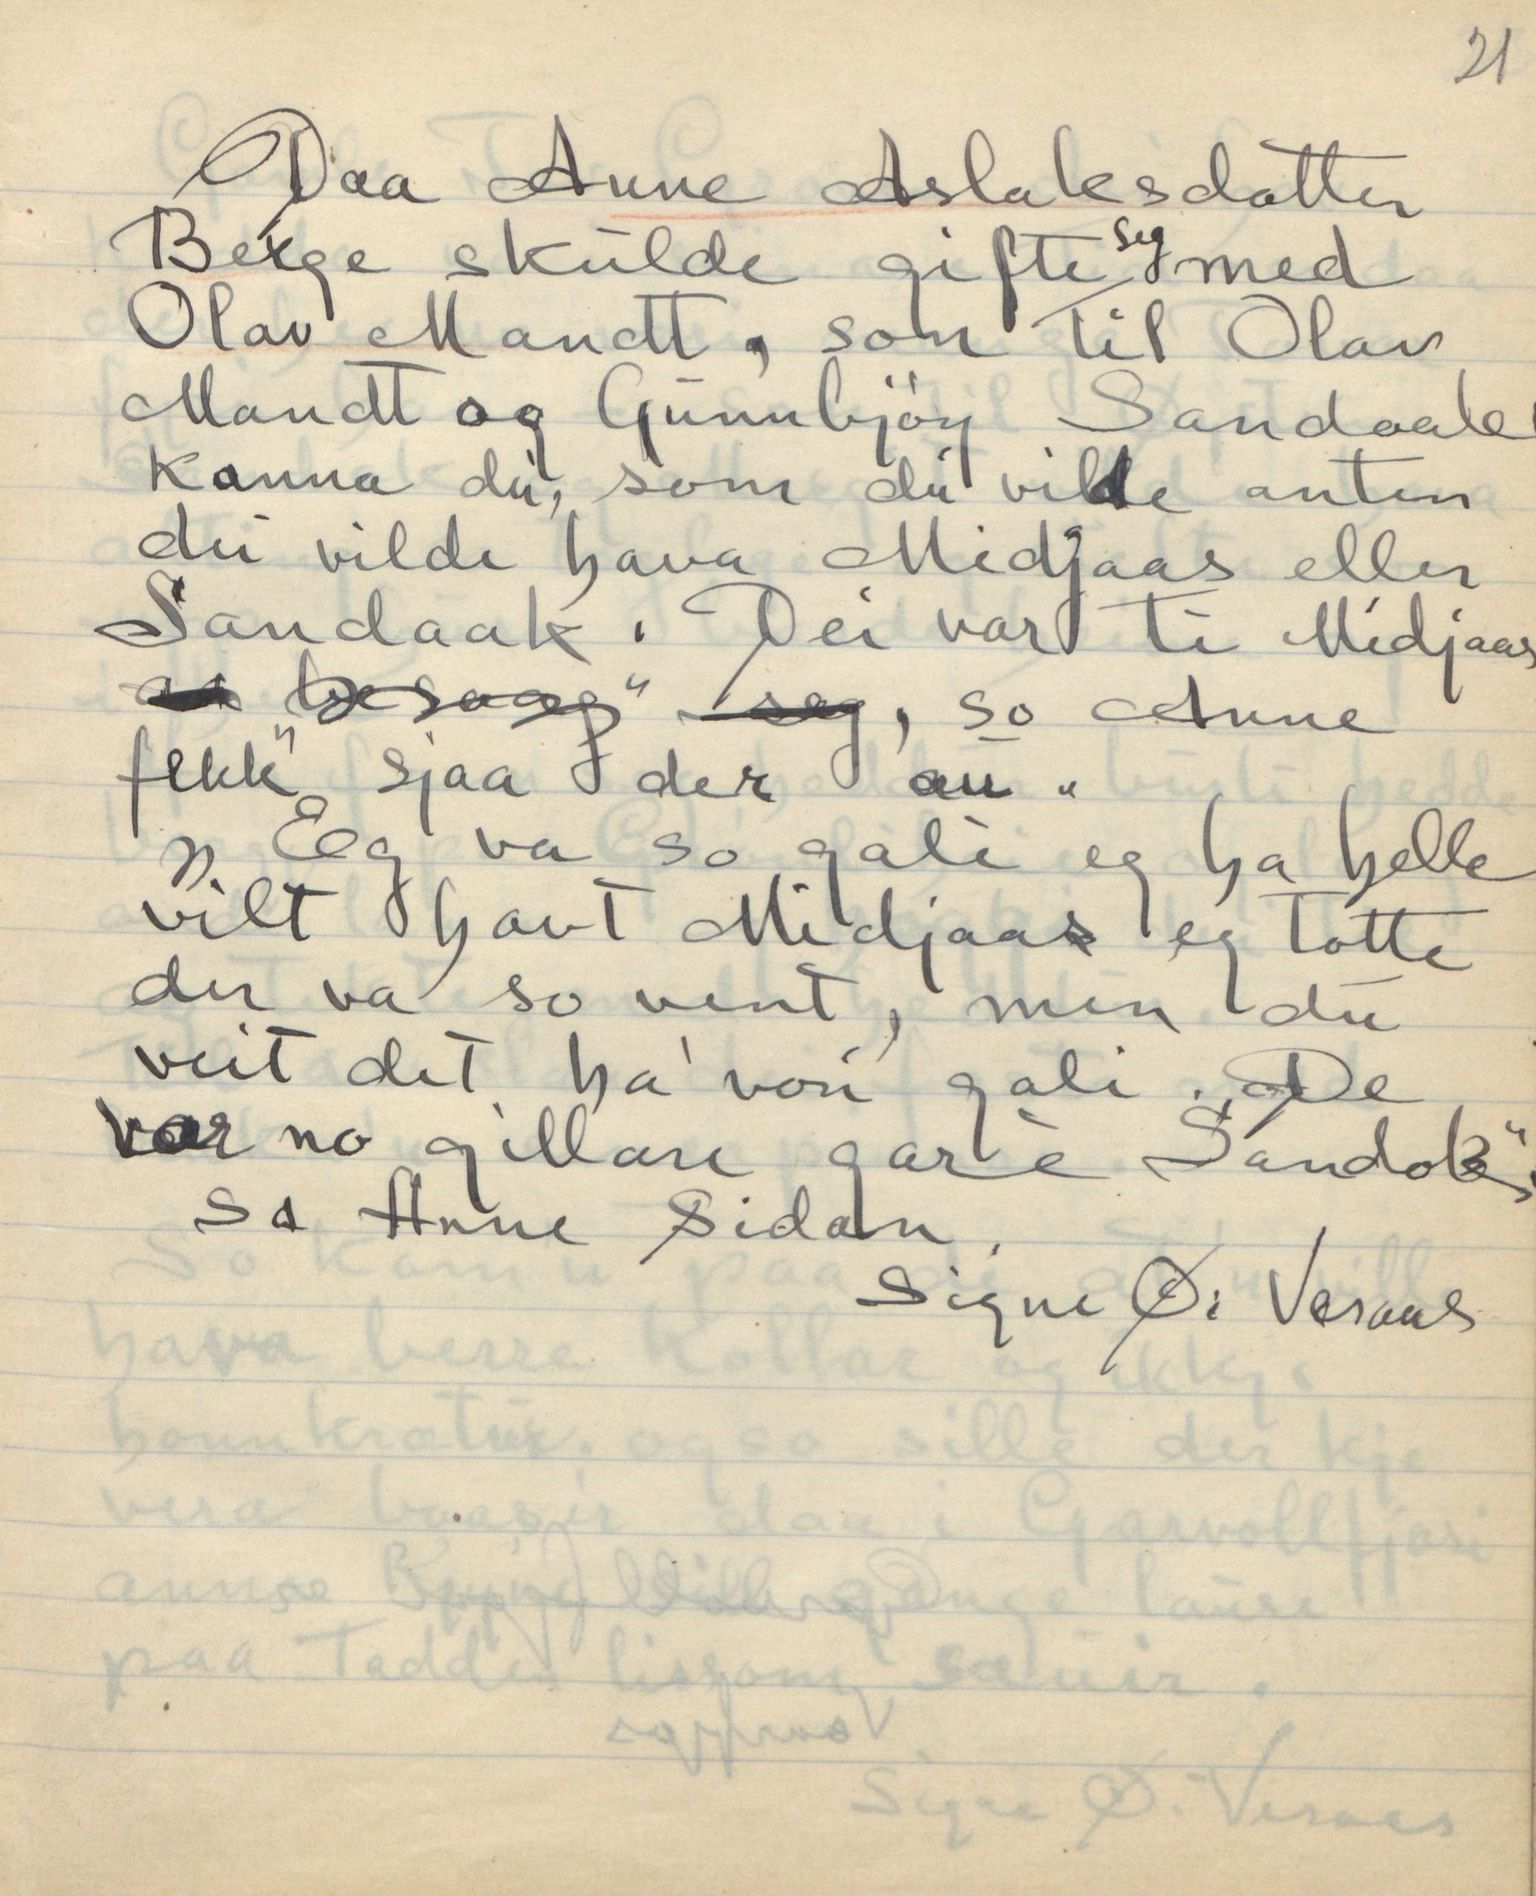 21
Daa Anne Aslaksdotter
Berge skulde gifte seg med
Olav Mandt, son til Olav
Mandt og Gunnbjör Sandaak
kanna du, som du vilde anten
du vilde hava Midjaas eller
Sandaak. Dei var ti Midjaas
besaag" seg, so Anne
fekk" sjaa der au.
„Eg va so gali eg ha helle
vilt havt Midjaas eg totte
der va so vent, men du
veit det ha vori gali. De
var no gillare gar è Sandok",
sa Anne sidan.
Signe Ø: Versaas